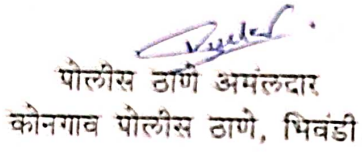 पोलीस ठाणे अमंलदार
कोनगाव पोलीस ठाणे, भिवंडी